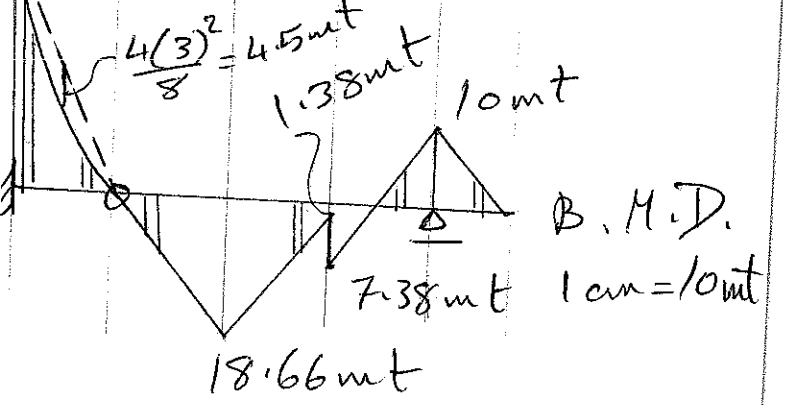 4(3)²/8 = 4.5mt
1.38mt
10mt
B.M.D.
7.38mt 1cm=10mt
18.66mt